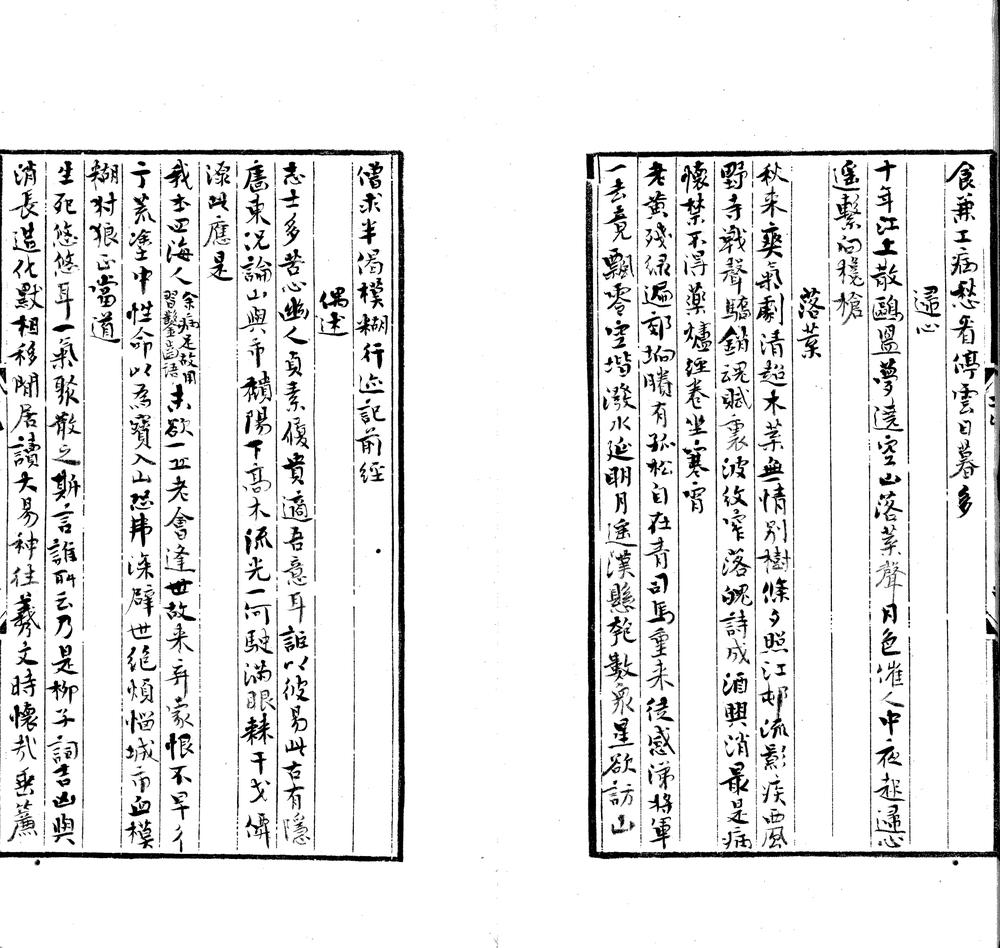 食兼工病愁看停雲日暮多
歸心
十年江上散鷗盟夢遶空山落葉聲月色催人中夜起歸心
遥繫向欃槍
落葉
秋来爽氣劇清超木葉無情别樹條夕照江邨流影疾西風
野寺戰聲驕銷魂賦裏波紋窄落魄詩成酒興消最是病
懷禁不得藥爐經卷坐寒宵
老黄殘緑遍郊坰賸有孤松自在青司馬重来徒感涕將軍
一去竟飄零空堦潑水延明月遥漢懸乾數衆星欲訪山
僧求半偈模糊行迹記前經
偶述
志士多苦心幽人貞素履貴適吾意耳詎以彼易此古有隱
廬東况論山與市頽陽下高木流光一何駛满眼棘干戈儕
深此應是
我本四海人余病足故用習鑿齒語未欲一丘老會逢世故来弃家恨不早彳
亍荒塗中性命以為寶入山恐弗深辟世絶煩惱城市血模
糊豺狼正當道
生死悠悠耳一氣聚散之斯言誰所云乃是柳子詞吉凶與
消長造化默相移閒居讀大易神往羲文時懷哉垂簾